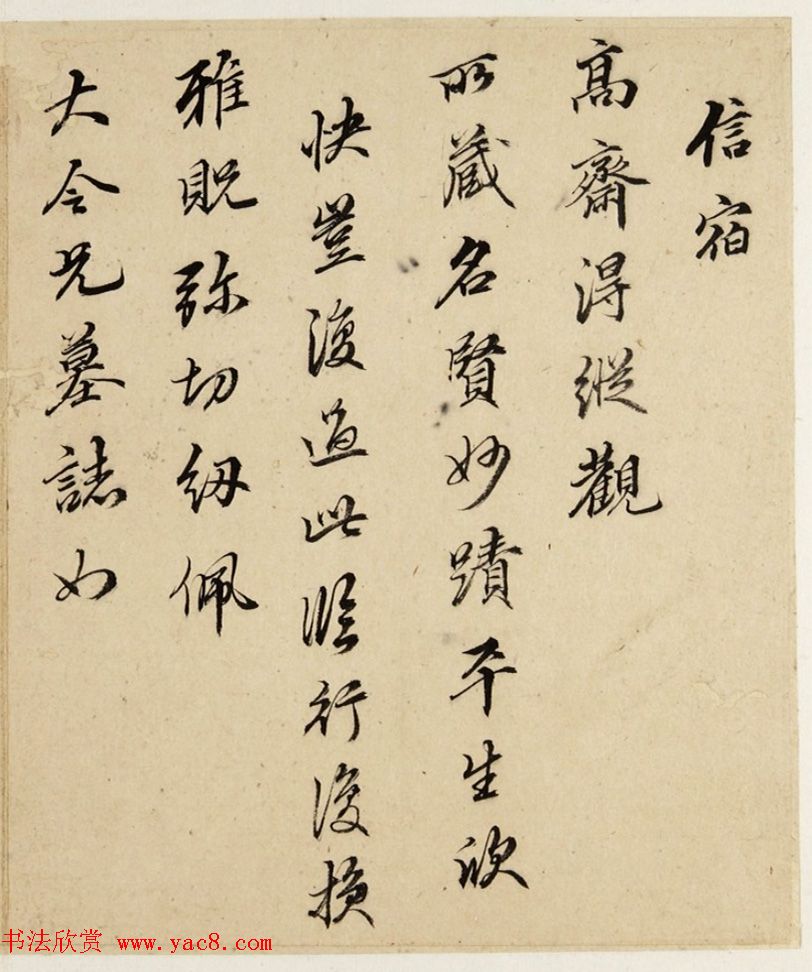 信宿
高齋得縱觀
所藏名賢妙蹟平生欣
快豈復過此臨行復損
雅貺弥切纫佩
大令兄墓誌如
书法欣赏 www.yac8.com